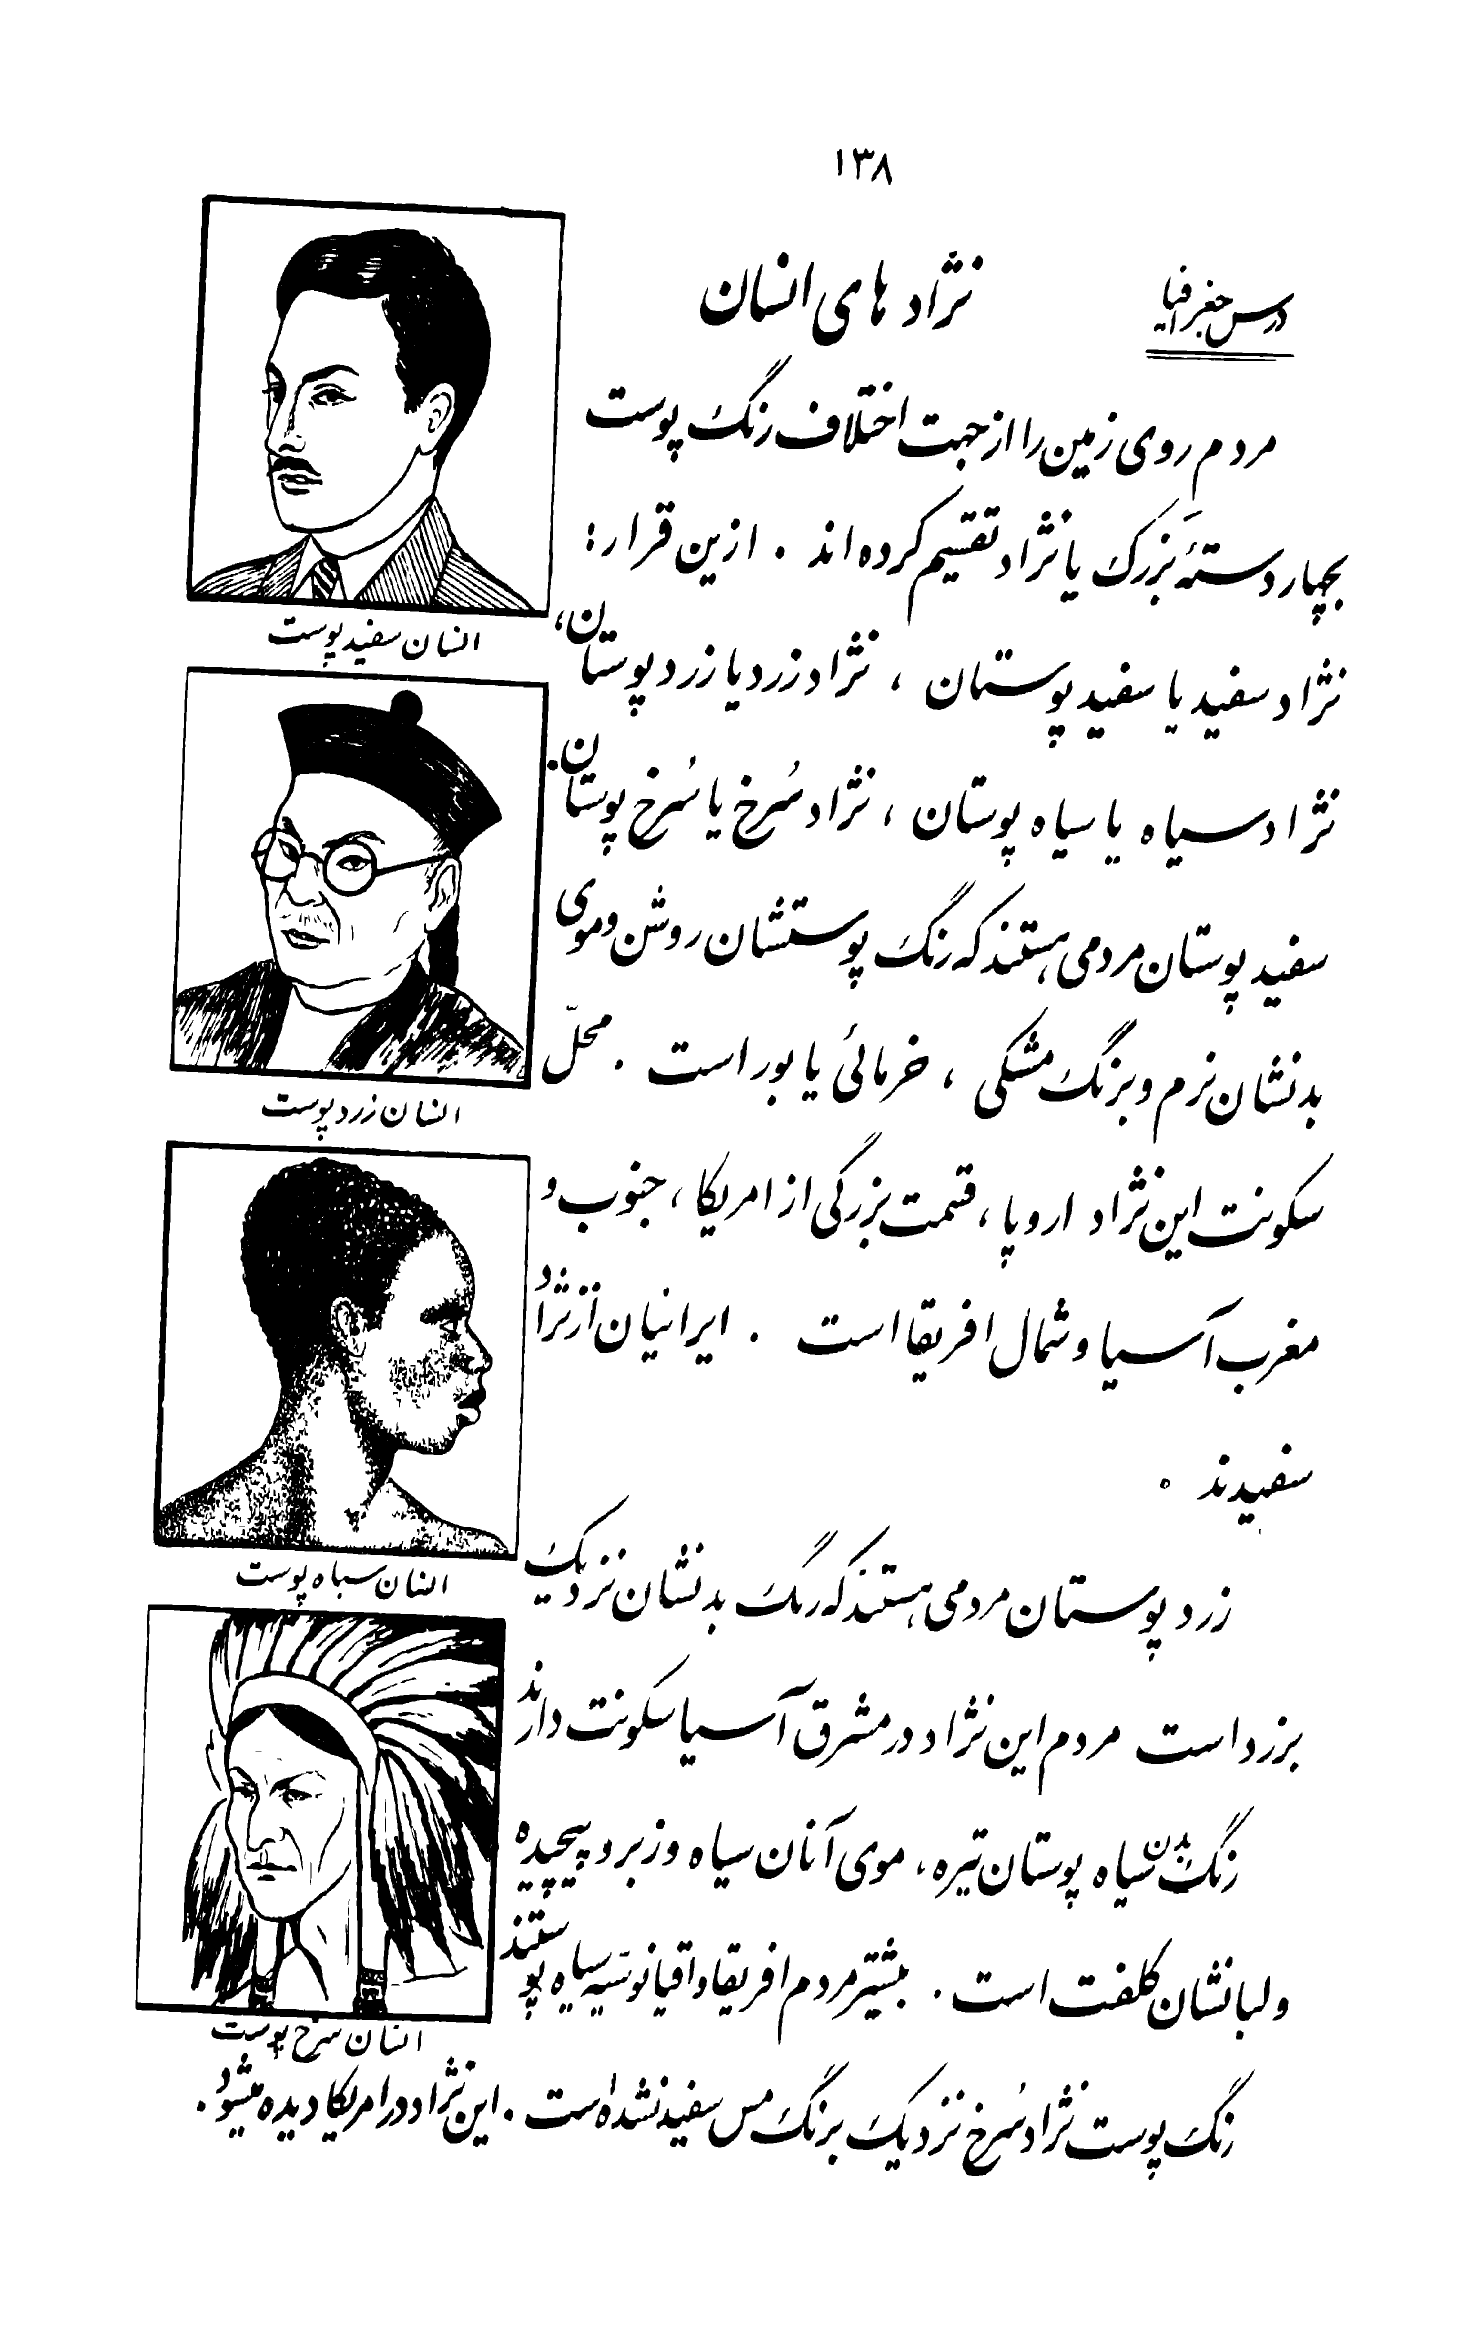 ۱۳۸
درس جغرافیا
نژاد های انسان
مردم روی زمین را از جهت اختلاف رنگ پوست
بچهار دستهٔ بزرگ یا نژاد تقسیم کرده اند . ازین قرار :
نژاد سفید یا سفید پوستان ، نژاد زرد یا زرد پوستان ،
نژاد سیاه یا سیاه پوستان ، نژاد سُرخ یا سُرخ پوستان .
سفید پوستان مردمی هستند که رنگ پوستشان روشن و موی
بدنشان نرم و برنگ مشکی ، خرمائی یا بور است . محلّ
سکونت این نژاد اروپا ، قسمت بزرگی از امریکا ، جنوب و
مغرب آسیا و شمال افریقا است . ایرانیان از نژاد
سفیدند .
زرد پوستان مردمی هستند که رنگ بدنشان نزدیک
بزرد است مردم این نژاد در مشرق آسیا سکونت دارند
رنگ بدن سیاه پوستان تیره ، موی آنان سیاه و زبر و پیچیده
و لبانشان کلفت است . بیشتر مردم افریقا و اقیانوسیّه سیاه پوستند
رنگ پوست نژاد سُرخ نزدیک برنگ مس سفید نشده است . این نژاد در امریکا دیده میشود .
انسان سفید پوست
انسان زرد پوست
انسان سیاه پوست
انسان سرخ پوست